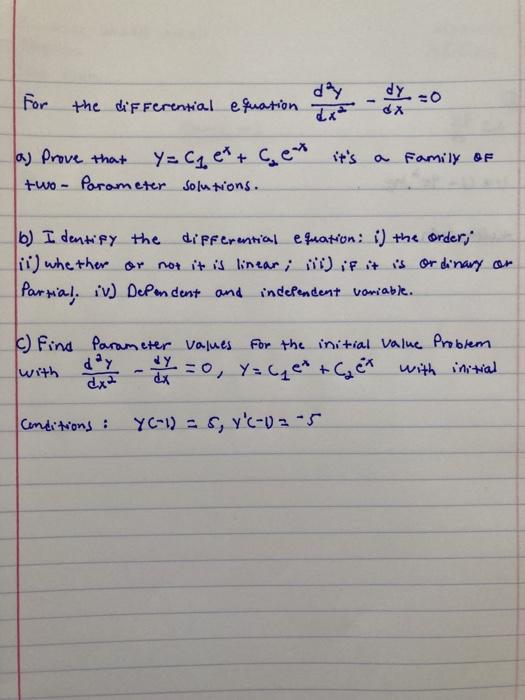 For the differential equation d²y/dx² - dy/dx = 0
a) Prove that y = C₁ eˣ + C₂ e⁻ˣ it's a Family OF
two - Parameter Solutions.
b) Identify the differential equation: i) the order;
ii) whether or not it is linear; iii) if it is ordinary or
Partial. iv) Dependent and independent variable.
C) Find Parameter values For the initial value Problem
with d²y/dx² - dy/dx = 0, y = C₁ eˣ + C₂ e⁻ˣ with initial
Conditions : Y(-1) = 5, Y'(-1) = -5